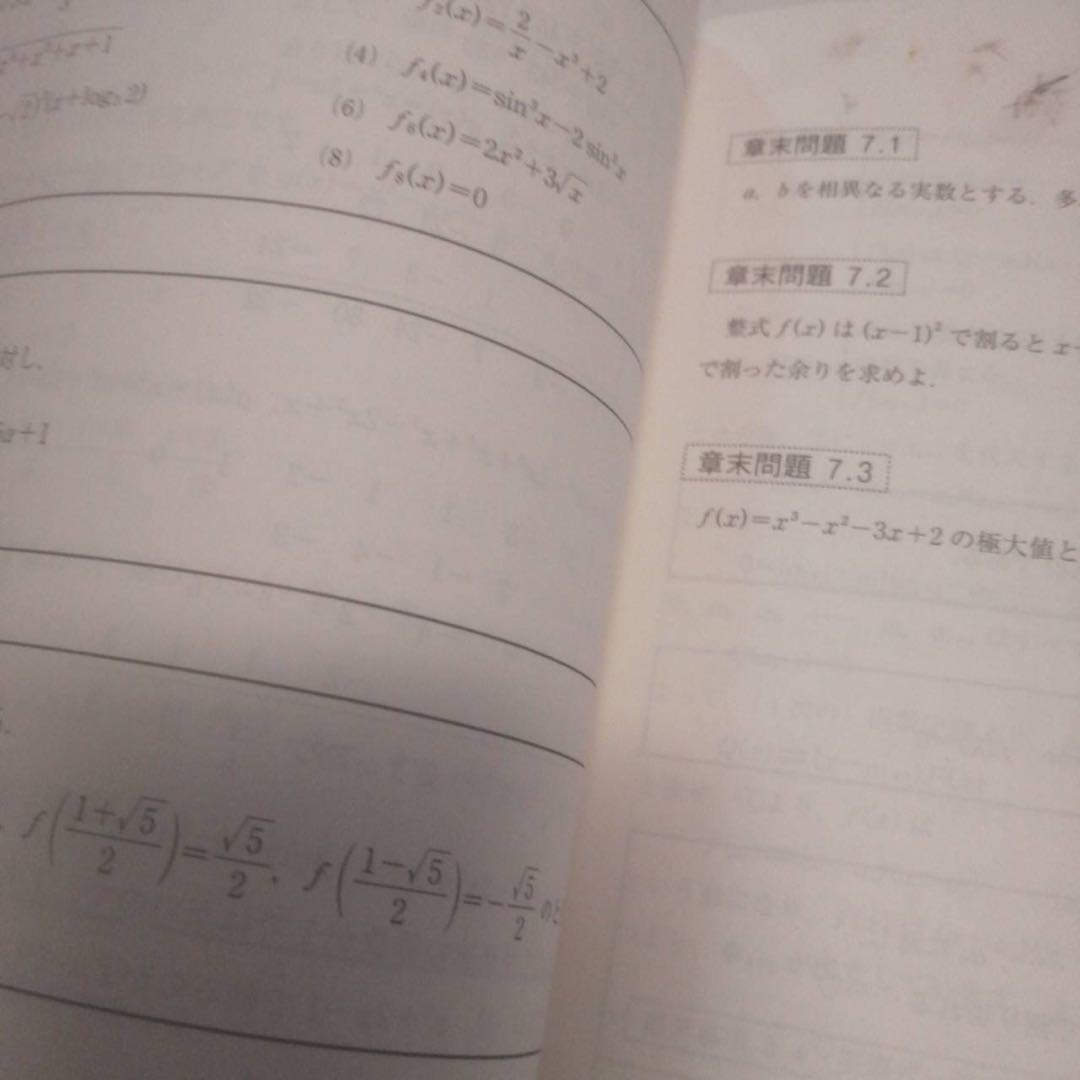 f₂(x)=2/x−x³+2
x³+x²+x+1
(4) f₄(x)=sin³x−2sin²x
(6) f₆(x)=2x²+3√x
(8) f₈(x)=0
対し,
a+1
f((1+√5)/2)=√5/2, f((1−√5)/2)=−√5/2 の
章末問題 7.1
a, b を相異なる実数とする. 多
章末問題 7.2
整式 f(x) は (x−1)² で割ると x
で割った余りを求めよ.
章末問題 7.3
f(x)=x³−x²−3x+2 の極大値と